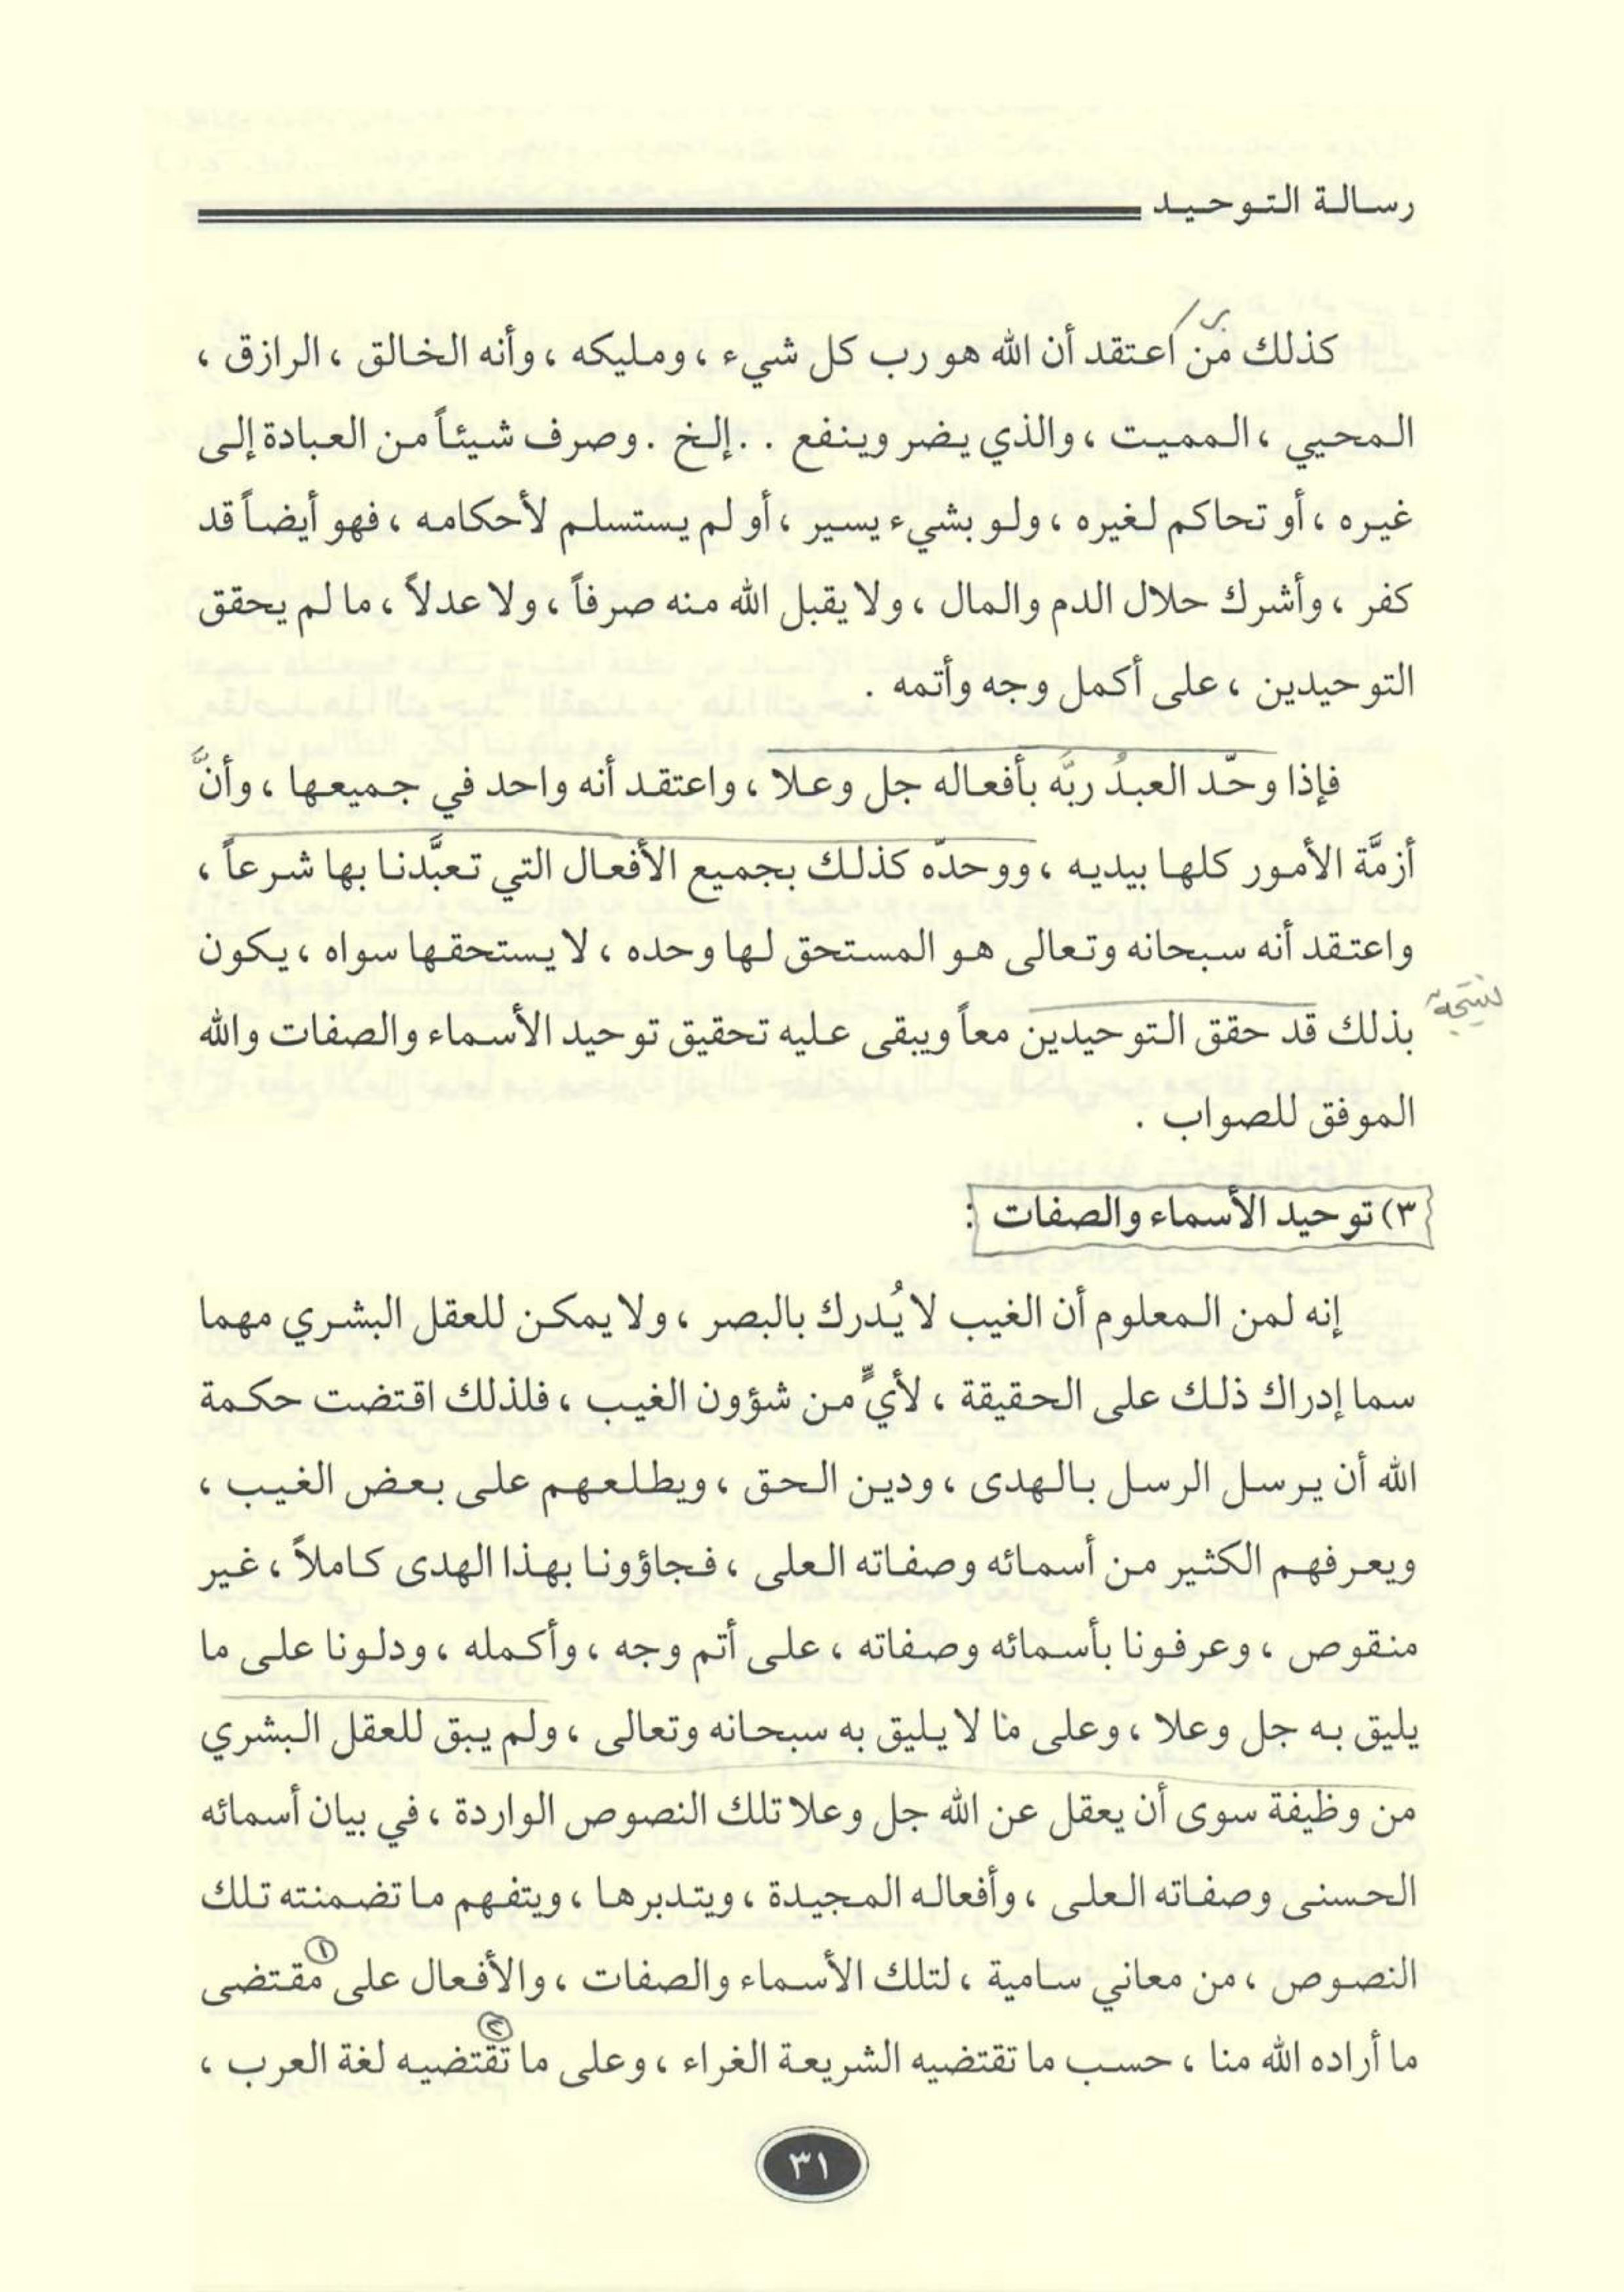 رسالة التوحيد
كذلك من اعتقد أن الله هو رب كل شيء ، ومليكه ، وأنه الخالق ، الرازق ،
المحيي ، المميت ، والذي يضر وينفع . . إلخ . وصرف شيئاً من العبادة إلى
غيره ، أو تحاكم لغيره ، ولو بشيء يسير ، أو لم يستسلم لأحكامه ، فهو أيضاً قد
كفر ، وأشرك حلال الدم والمال ، ولا يقبل الله منه صرفاً ، ولا عدلاً ، ما لم يحقق
التوحيدين ، على أكمل وجه وأتمه .
فإذا وحّد العبدُ ربَّه بأفعاله جل وعلا ، واعتقد أنه واحد في جميعها ، وأنَّ
أزمَّة الأمور كلها بيديه ، ووحدّه كذلك بجميع الأفعال التي تعبَّدنا بها شرعاً ،
واعتقد أنه سبحانه وتعالى هو المستحق لها وحده ، لا يستحقها سواه ، يكون
نتيجة
بذلك قد حقق التوحيدين معاً ويبقى عليه تحقيق توحيد الأسماء والصفات والله
الموفق للصواب .
٣) توحيد الأسماء والصفات :
إنه لمن المعلوم أن الغيب لا يُدرك بالبصر ، ولا يمكن للعقل البشري مهما
سما إدراك ذلك على الحقيقة ، لأيٍّ من شؤون الغيب ، فلذلك اقتضت حكمة
الله أن يرسل الرسل بالهدى ، ودين الحق ، ويطلعهم على بعض الغيب ،
ويعرفهم الكثير من أسمائه وصفاته العلى ، فجاؤونا بهذا الهدى كاملاً ، غير
منقوص ، وعرفونا بأسمائه وصفاته ، على أتم وجه ، وأكمله ، ودلونا على ما
يليق به جل وعلا ، وعلى ما لا يليق به سبحانه وتعالى ، ولم يبق للعقل البشري
من وظيفة سوى أن يعقل عن الله جل وعلا تلك النصوص الواردة ، في بيان أسمائه
الحسنى وصفاته العلى ، وأفعاله المجيدة ، ويتدبرها ، ويتفهم ما تضمنته تلك
النصوص ، من معاني سامية ، لتلك الأسماء والصفات ، والأفعال على ١ مقتضى
ما أراده الله منا ، حسب ما تقتضيه الشريعة الغراء ، وعلى ٢ ما تقتضيه لغة العرب ،
٣١